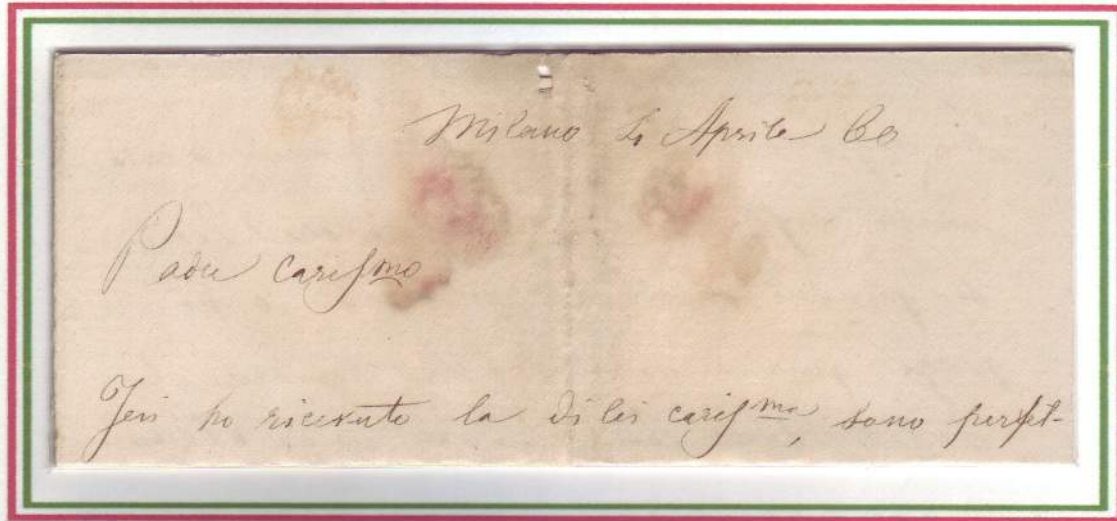 Milano 4 Aprile 60
Padre cariss.mo
Jeri ho ricevuto la di lei cariss.ma, sono perfet-